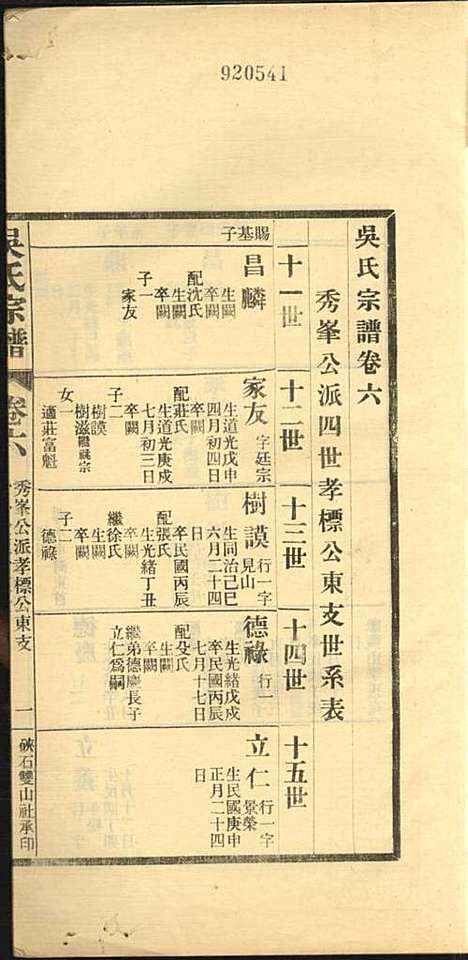 920541
吳氏宗譜卷六
秀峯公派四世孝標公東支世系表
十一世
十二世
十三世
十四世
十五世
賜基子
昌麟
生闕
卒闕
配沈氏
生闕
卒闕
子一
家友
家友 字廷宗
生道光戊申
四月初四日
卒闕
配莊氏
生道光庚戌
七月初三日
卒闕
子二
樹謨
樹滋繼祺宗
女一
適莊富魁
樹謨 行一字見山
生同治己巳
六月二十四
日
卒民國丙辰
配張氏
生光緒丁丑
卒闕
繼徐氏
生闕
卒闕
子二
德祿
德祿 行一
生光緒戊戌
卒民國丙辰
七月十七日
配殳氏
生闕
卒闕
繼弟德慶長子
立仁爲嗣
立仁 行一字景榮
生民國庚申
正月二十四
日
吳氏宗譜
卷六
秀峯公派孝標公東支
一
硤石雙山社承印